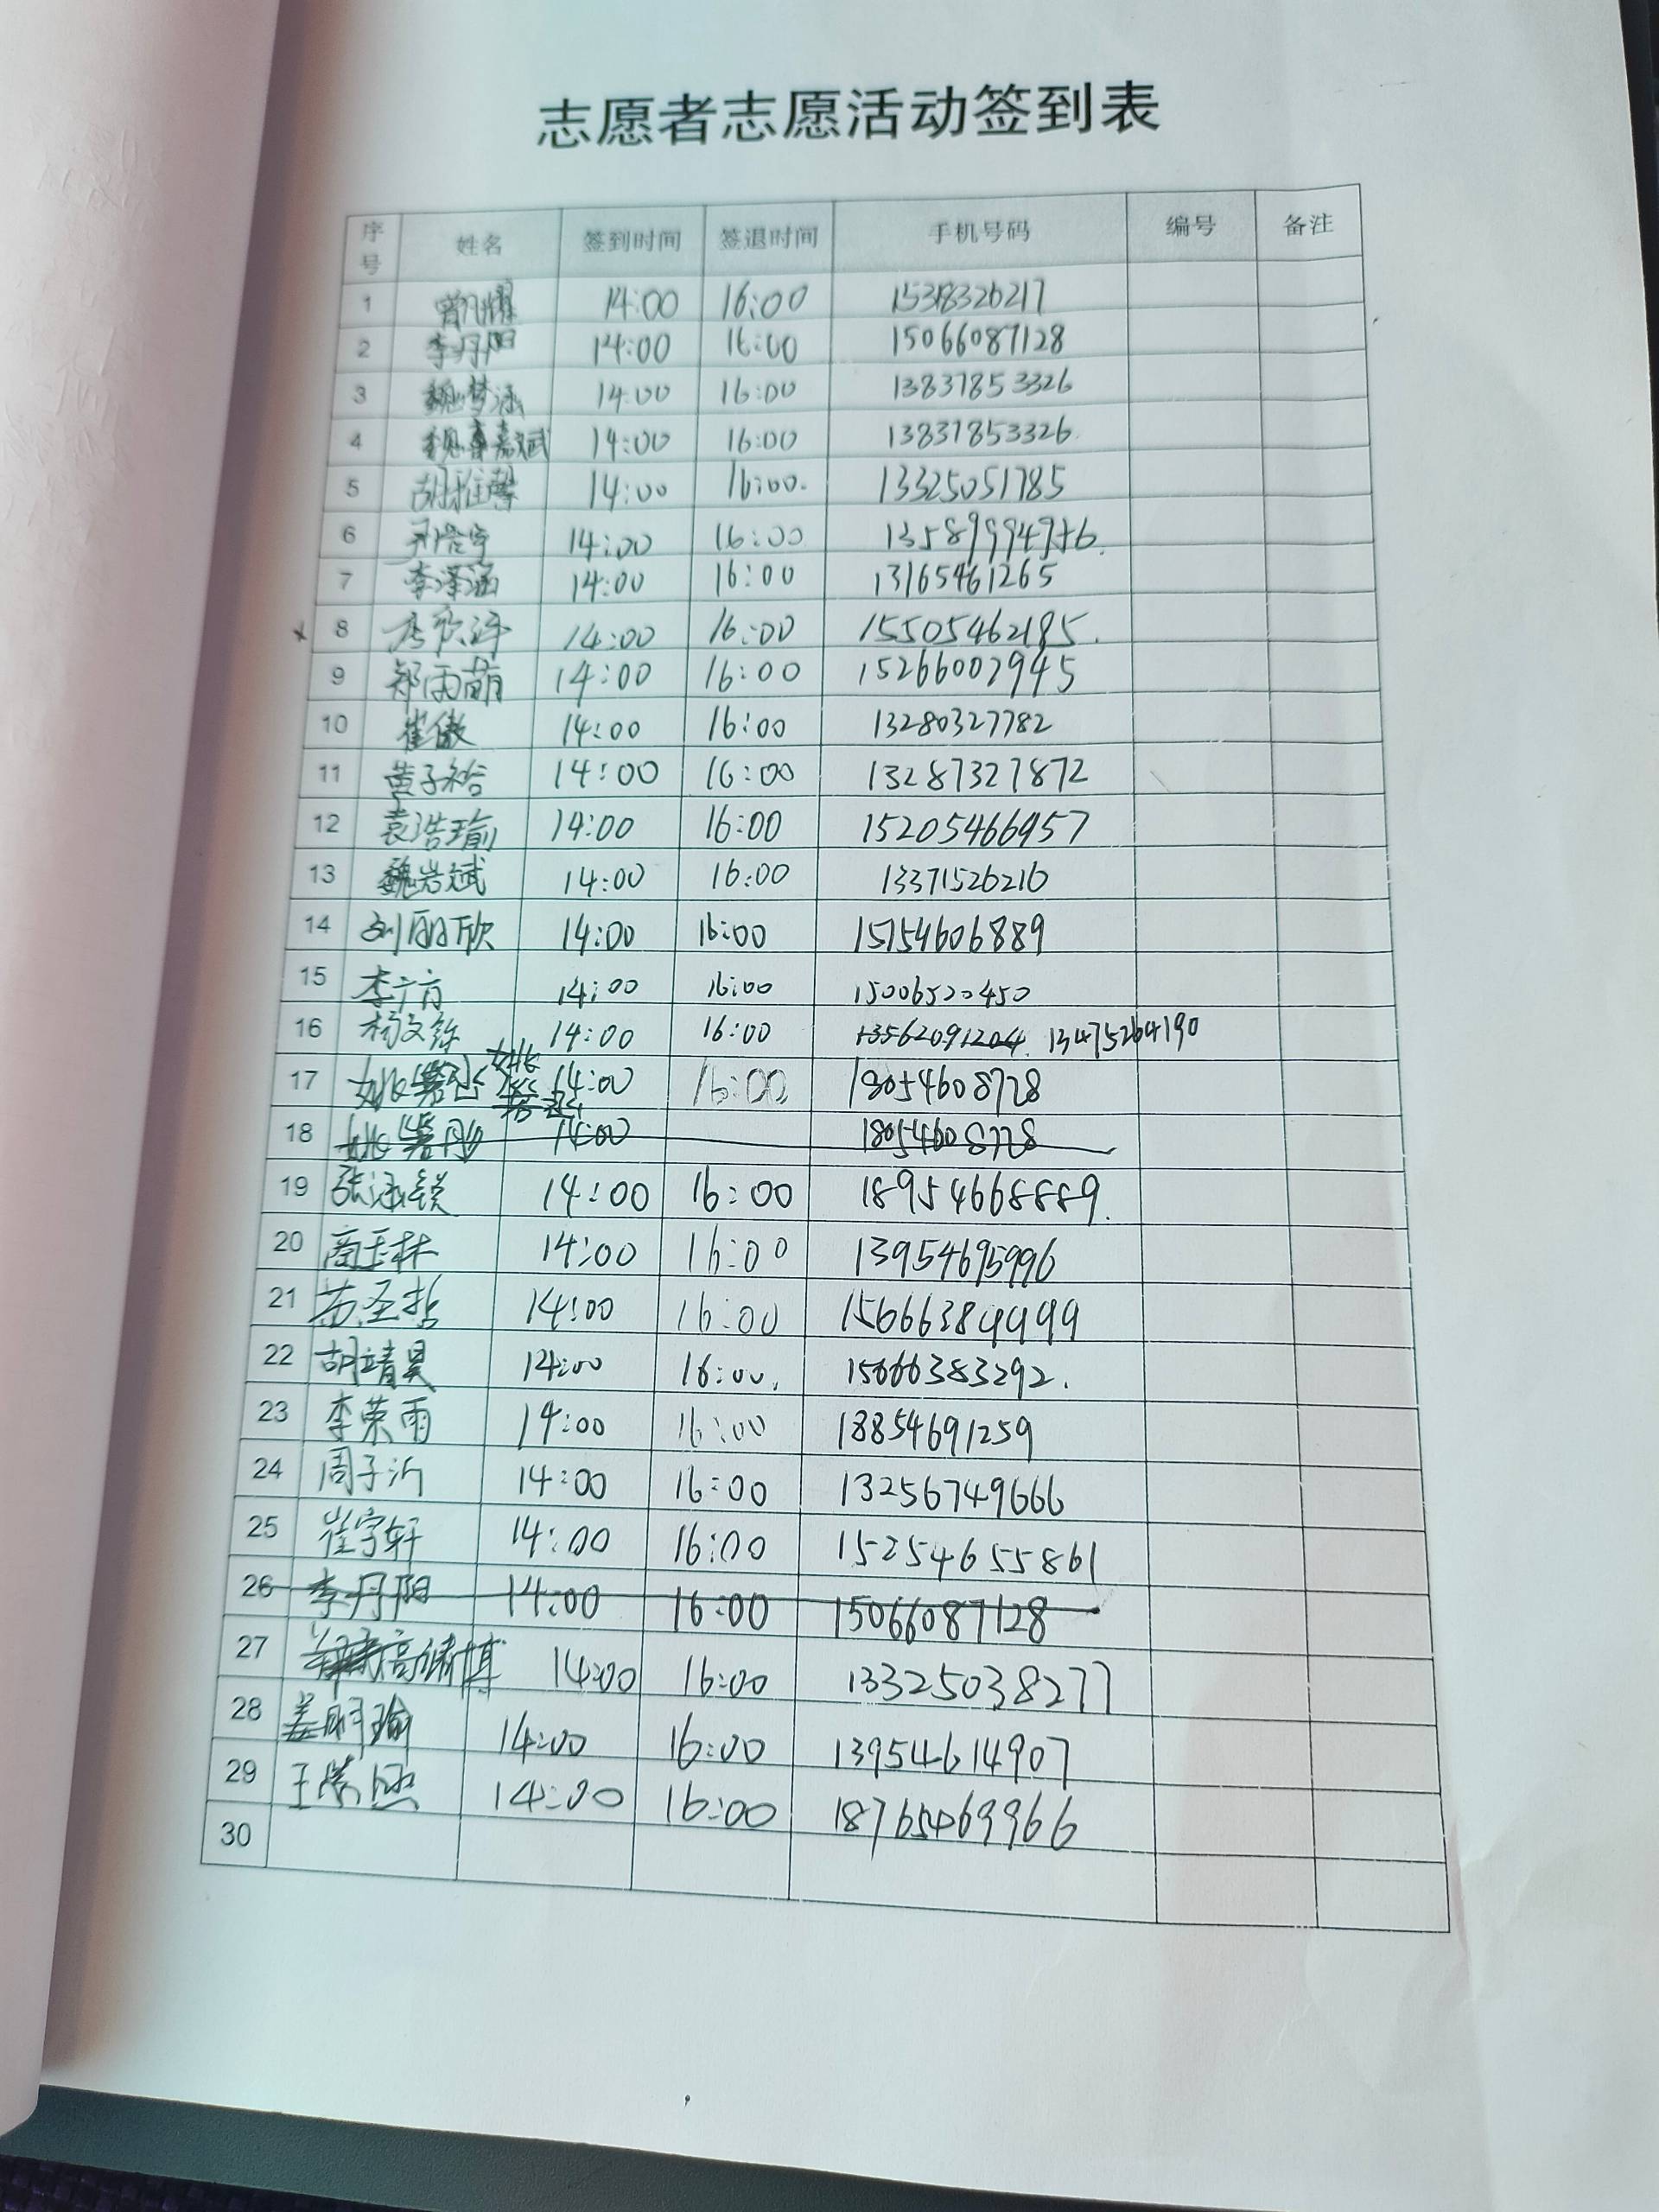 志愿者志愿活动签到表
序号 姓名 签到时间 签退时间 手机号码 编号 备注
1 14:00 16:00 15318326217
2 李丹阳 14:00 16:00 15066087128
3 魏梦涵 14:00 16:00 13837853326
4 14:00 16:00 13837853326
5 胡雅馨 14:00 16:00 13325051785
6 14:00 16:00
7 李泽涵 14:00 16:00 13165461265
8 14:00 16:00 15505462185
9 郑雨萌 14:00 16:00 15266002945
10 崔傲 14:00 16:00 13280327782
11 黄子裕 14:00 16:00 13287327872
12 袁浩瑜 14:00 16:00 15205466957
13 魏岩斌 14:00 16:00 13371526210
14 14:00 16:00 15754606889
15 李广方 14:00 16:00 15006520450
16 14:00 16:00 13562091204 13475264190
17 14:00 16:00 18054608728
18 14:00 18054608728
19 14:00 16:00 18954668889
20 商玉林 14:00 16:00 13954695996
21 苏圣哲 14:00 16:00 15666389999
22 胡靖昊 14:00 16:00 15666383292
23 李荣雨 14:00 16:00 18854691259
24 周子沂 14:00 16:00 13256749666
25 崔宇轩 14:00 16:00 15254655861
26 李丹阳 14:00 16:00 15066087128
27 14:00 16:00 13325038277
28 姜明瑜 14:00 16:00 13954614907
29 14:00 16:00 18765469966
30